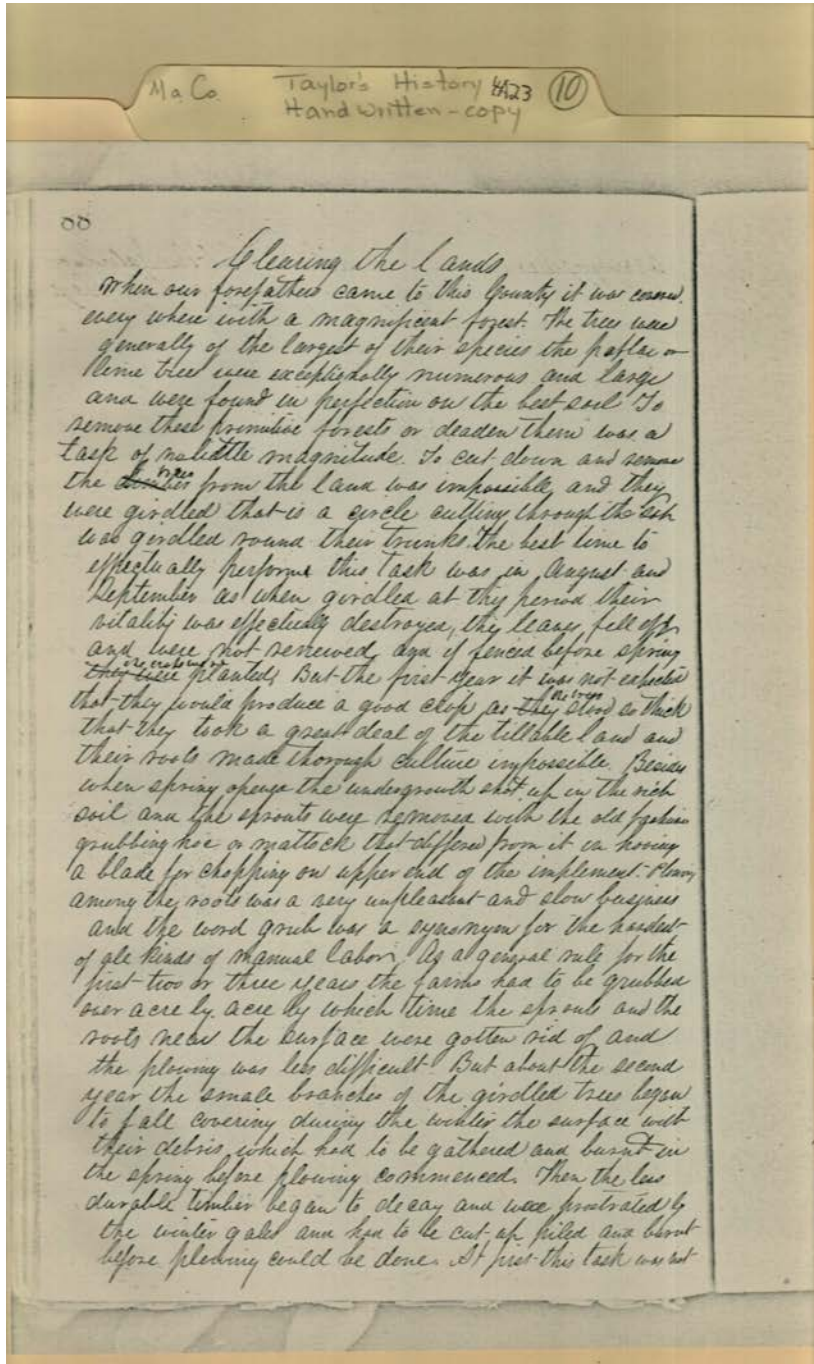 Ma. Co. Taylor's History 4A23 10
Handwritten - copy
Clearing the lands
When our forefathers came to this County it was covered
every where with a magnificent forest. The trees were
generally of the largest of their species the poplar or
lime tree were exceptionally numerous and large
and were found in perfection on the best soil To
remove these primitive forests or deaden them was a
task of no little magnitude. To cut down and remove
the trees from the land was impossible and they
were girdled that is a circle cutting through the
was girdled round their trunks. The best time to
effectually perform this task was in August and
September as when girdled at this period their
vitality was effectually destroyed, the leaves fell off
and were not renewed and if fenced before spring
they were planted. But the first year it was not expected
that they would produce a good crop as they the trees stood so thick
that they took a great deal of the tillable land and
their roots made thorough culture impossible. Besides
when spring opened the undergrowth shot up in the rich
soil and the sprouts were removed with the old fashion
grubbing hoe or mattock that differed from it in having
a blade for chopping on upper end of the implement. Plowing
among the roots was a very unpleasant and slow business
and the word grub was a synonym for the hardest
of all kinds of manual labor. As a general rule for the
first two or three years the farms had to be grubbed
over acre by acre by which time the sprouts and the
roots near the surface were gotten rid of and
the plowing was less difficult. But about the second
year the small branches of the girdled trees began
to fall covering during the winter the surface with
their debris which had to be gathered and burnt in
the spring before plowing commenced. Then the less
durable timber began to decay and were prostrated by
the winter gales and had to be cut up piled and burnt
before plowing could be done. At first this task was not